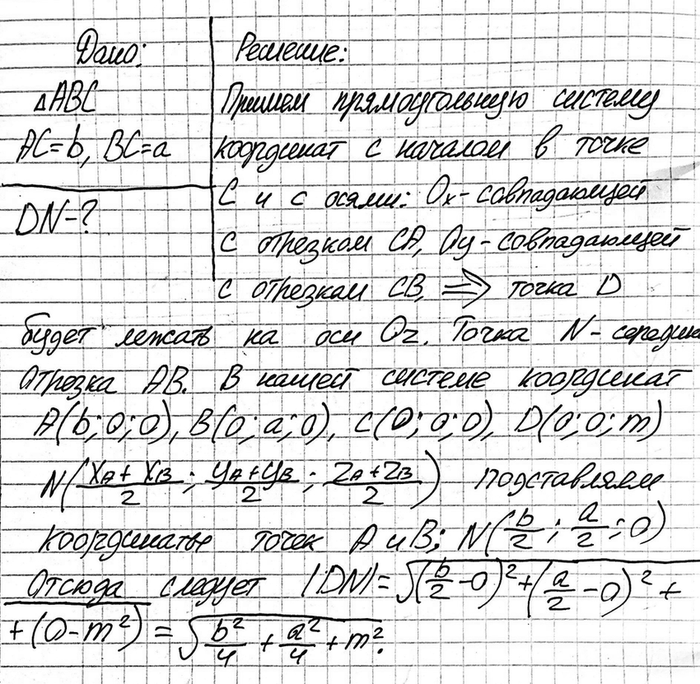 Дано:
△ABC
AC=b, BC=a
DN-?
Решение:
Примем прямоугольную систему
координат с началом в точке
C и с осями: Ox-совпадающей
с отрезком CA, Oy-совпадающей
с отрезком CB, ⟹ точка D
будет лежать на оси Oz. Точка N-середина
отрезка AB. В нашей системе координат
A(b;0;0), B(0;a;0), C(0;0;0), D(0;0;m)
N((xA+xB)/2; (yA+yB)/2; (zA+zB)/2) подставляем
координаты точек A и B; N(b/2; a/2; 0)
Отсюда следует |DN|=√((b/2-0)²+(a/2-0)²+
+(0-m²)=√(b²/4+a²/4+m²).